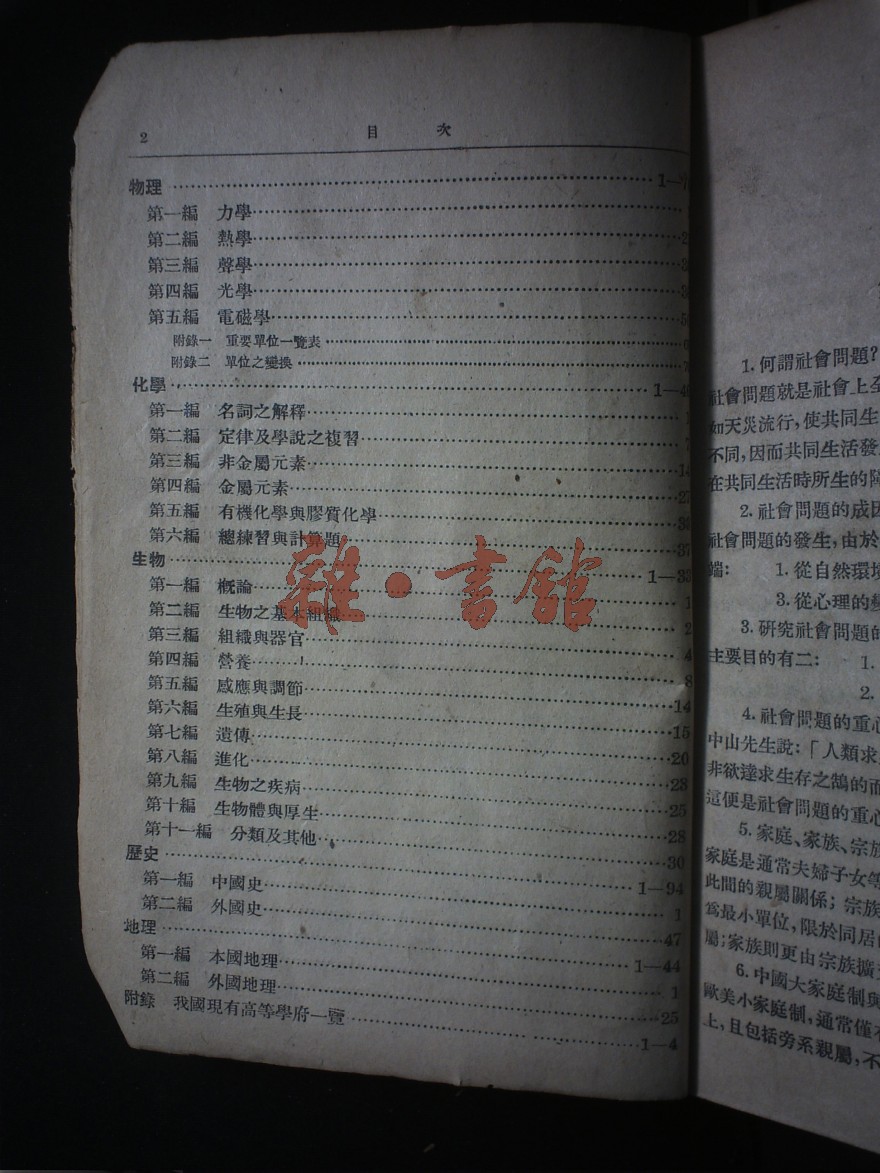 2 目 次
物理 1—7
第一編 力學
第二編 熱學 2
第三編 聲學
第四編 光學 3
第五編 電磁學 5
附錄一 重要單位一覽表 6
附錄二 單位之變換
化學 1—40
第一編 名詞之解釋
第二編 定律及學說之複習 7
第三編 非金屬元素 14
第四編 金屬元素 27
第五編 有機化學與膠質化學 33
第六編 總練習與計算題 37
生物 1—33
第一編 概論 1
第二編 生物之基本組織 2
第三編 組織與器官 4
第四編 營養 8
第五編 感應與調節 14
第六編 生殖與生長 15
第七編 遺傳 20
第八編 進化 23
第九編 生物之疾病 25
第十編 生物體與厚生 28
第十一編 分類及其他 30
歷史 1—94
第一編 中國史 1
第二編 外國史 47
地理 1—44
第一編 本國地理 1
第二編 外國地理 25
附錄 我國現有高等學府一覽 1—4
雜·書館
1.何謂社會問題?
社會問題就是社會上至
如天災流行,使共同生
不同,因而共同生活發
在共同生活時所生的障
2.社會問題的成因
社會問題的發生,由於
端: 1.從自然環境
3.從心理的變
3.研究社會問題的
主要目的有二: 1.
2.
4.社會問題的重心
中山先生說:「人類求
非欲達求生存之鵠的而
這便是社會問題的重心
5.家庭、家族、宗族
家庭是通常夫婦子女等
此間的親屬關係;宗族
為最小單位,限於同居
屬;家族則更由宗族擴
6.中國大家庭制與
歐美小家庭制,通常僅
上,且包括旁系親屬,不